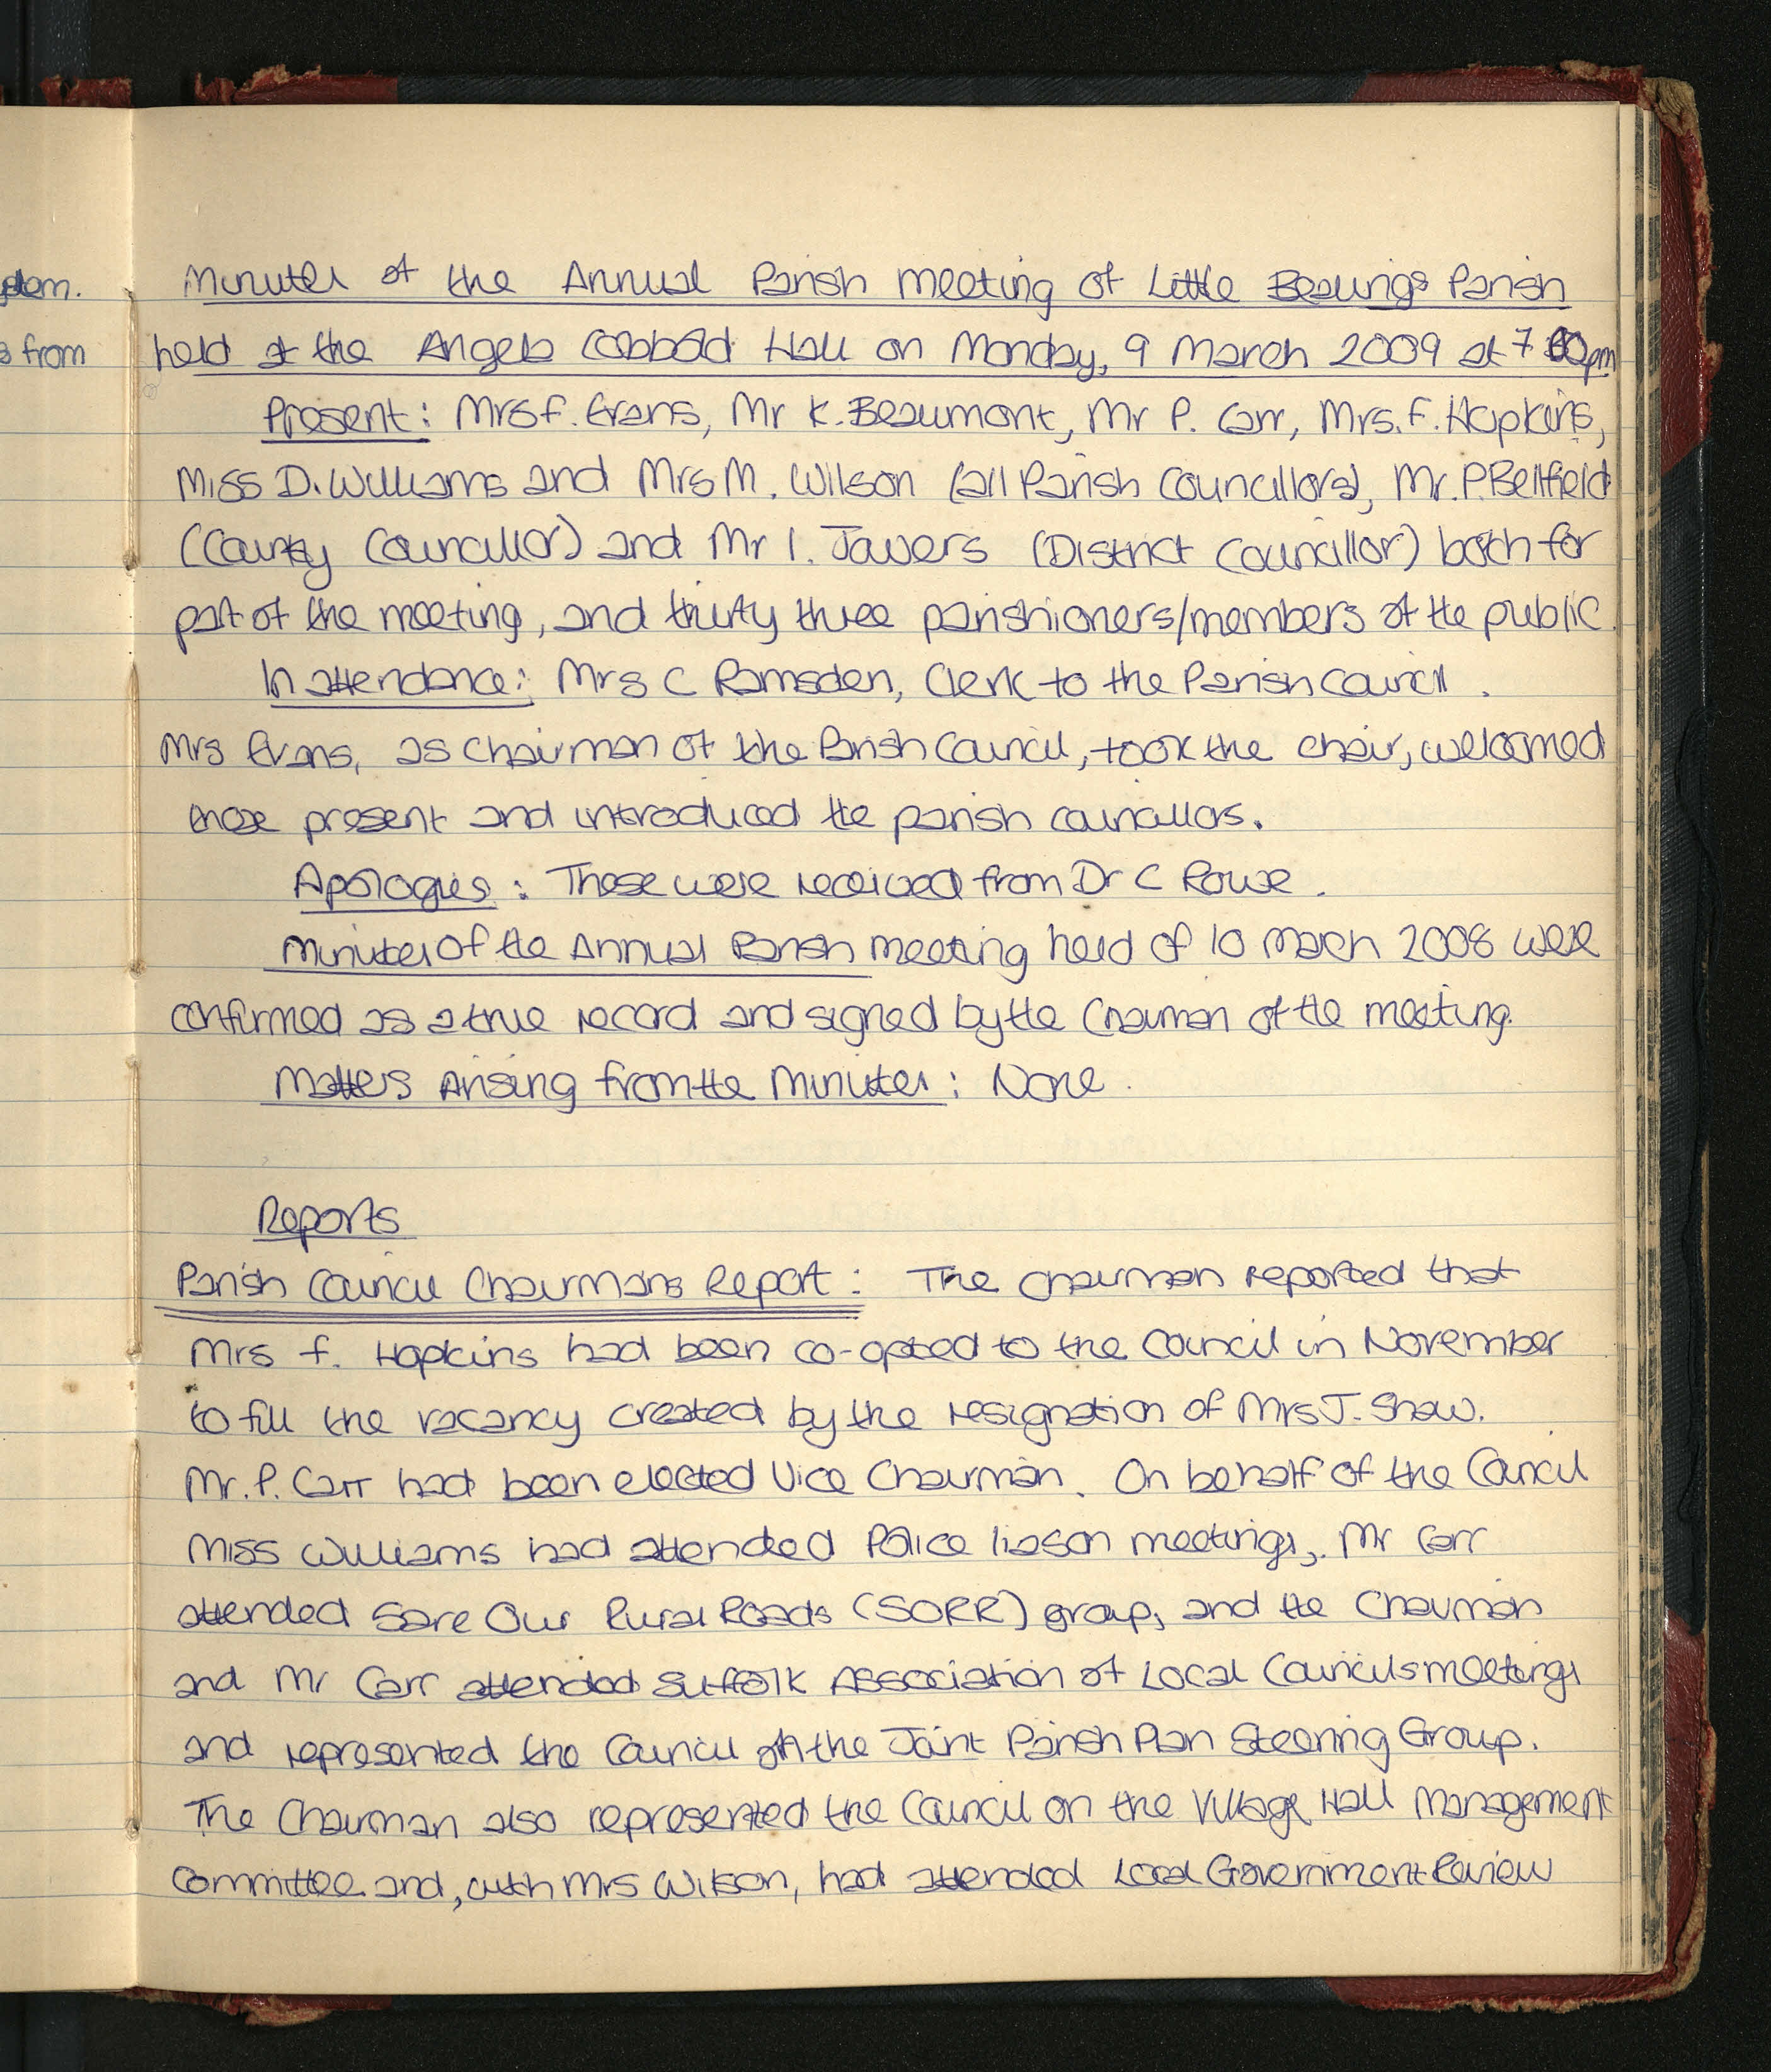 Minutes of the Annual Parish Meeting of Little Bealings Parish
held at the Angela Cobbold Hall on Monday, 9 March 2009 at 7
Present: Mrs F. Evans, Mr K. Beaumont, Mr P. Carr, Mrs. F. Hopkins,
Miss D. Williams and Mrs M. Wilson (all Parish Councillors), Mr. P. Bellfield
(County Councillor) and Mr I. Jowers (District Councillor) both for
part of the meeting, and thirty three parishioners/members of the public
In attendance: Mrs C Ramsden, Clerk to the Parish Council.
Mrs Evans, as Chairman of the Parish Council, took the chair, welcomed
those present and introduced the parish councillors.
Apologies: These were received from Dr C Rowe.
Minutes of the Annual Parish meeting held of 10 March 2008 were
confirmed as a true record and signed by the Chairman of the meeting.
Matters Arising from the Minutes: None.
Reports
Parish Council Chairmans Report: The Chairman reported that
Mrs F. Hopkins had been co-opted to the Council in November
to fill the vacancy created by the resignation of Mrs J. Shaw.
Mr. P. Carr had been elected Vice Chairman. On behalf of the Council
Miss Williams had attended Police liason meetings, Mr Carr
attended Save Our Rural Roads (SORR) group, and the Chairman
and Mr Carr attended Suffolk Association of Local Councils meetings
and represented the Council on the Joint Parish Plan Steering Group.
The Chairman also represented the Council on the Village Hall Management
Committee and, with Mrs Wilson, had attended Local Government Review
from